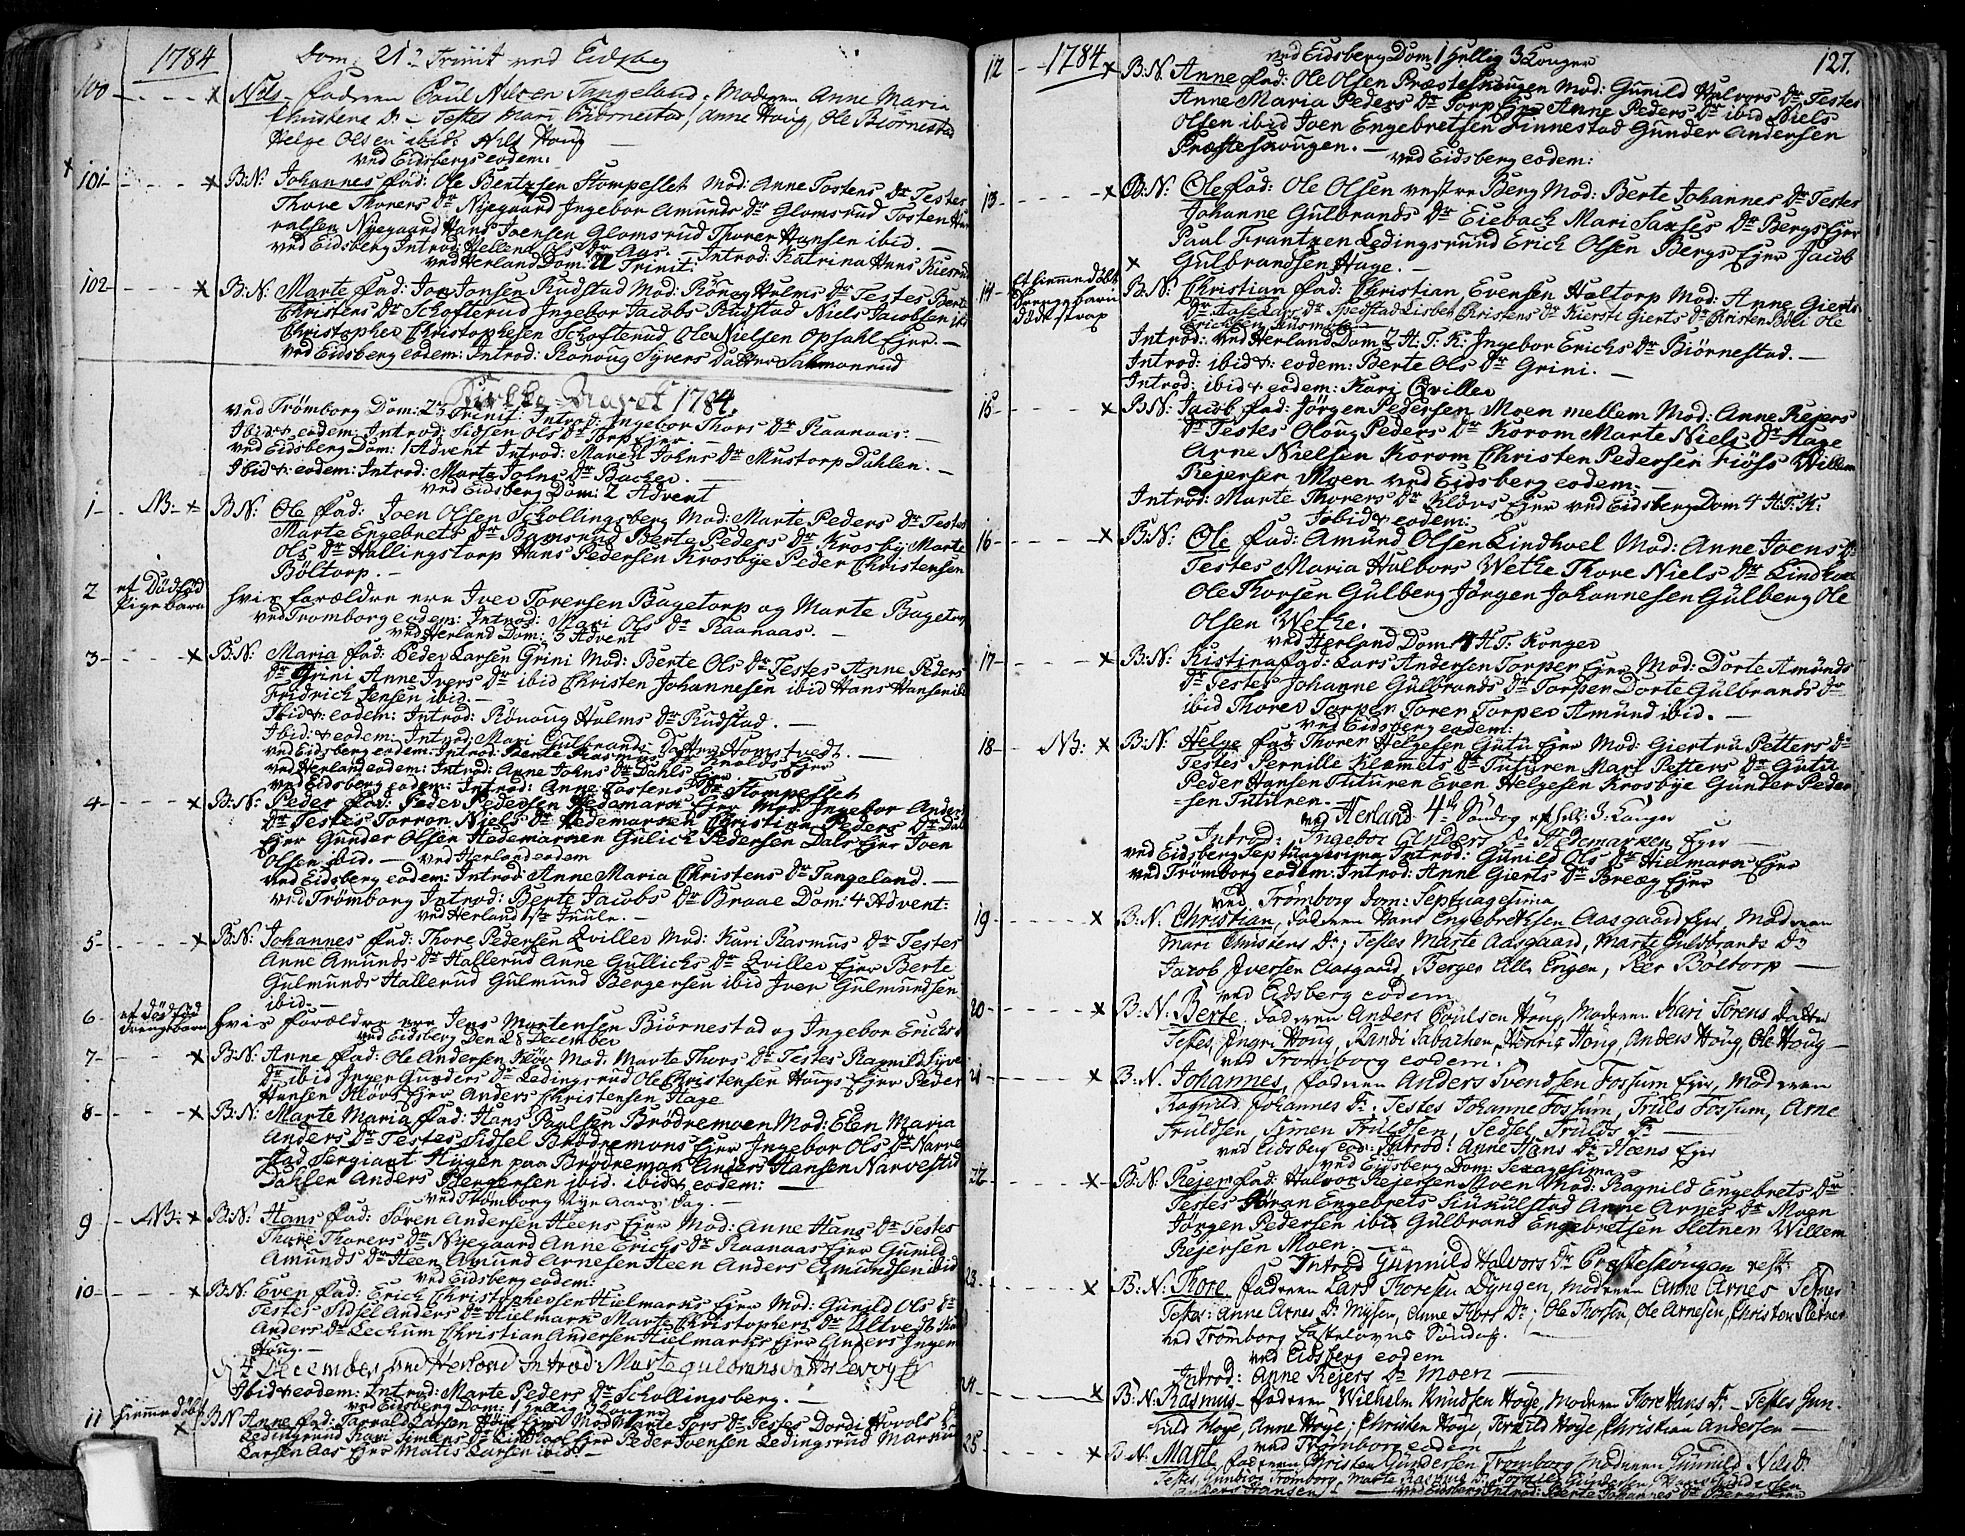 1784
Dom: 21 Trinit ved Eidsberg
100 Nils faderen Poul Nilsen Tangeland, Moderen Anne Maria
Christens Dr Testes Mari Biørnestad, Anne Houg, Ole Biørnestad
Helge Olsen ibid: Nils Houg
ved Eidsbergs eodem:
101 B:N: Johannes fad: Ole Bentzsen Stompeslet Mod: Anne Tostens Dr Testes
Thore Thorers Dr Nyegaard Ingebor Amunds Dr Glomsrud Tosten Ha
ralsen Nyegaard Hans Joensen Glomsrud Thorer Hansen ibid. —
ved Eidsberg Introd: Hellena Ols Dr Aas. — Introd: Katrina Hans Kiesrud
ved Herland Dom: 22 Trinit:
102 B:N: Marte fad: Jon Jonsen Rudstad Mod: Rönoug Holms Dr Testes Berte
Christens Dr Schofterud Ingebor Jacobs Rudstad Niels Jacobsen ibid
Christopher Christophersen Schofterud Ole Nielsen Opsahl Ejer. —
ved Eidsberg eodem: Introd: Ronoug Syvers Datter Salmonrud
Kirke-Aaret 1784.
ved Trömborg Dom: 23 Trinit: Introd: Ingebor Thors Dr Raanaas. —
Ibid: eodem: Introd: Sidsen Ols Dr Torp Ejer. —
ved Eidsberg Dom: 1 Advent Introd: Maren Johns Dr Mustorp Dahlen. —
Ibid: eodem: Introd: Marte Johns Dr Backer. —
ved Eidsberg Dom: 2 Advent
1 NB: B:N: Ole fad: Joen Olsen Schollingsberg Mod: Marte Peders Dr Testes
Marte Engebrets Dr Ramsrud Berte Peders Dr Krosby Marte
Ols Dr Hallingstorp Hans Pedersen Krosbye Peder Christensen
Böltorp. —
2 et Dødfød Pigebarn hvis forældre ere Iver Torersen Bagetorp og Marte Bagetorp
ved Tromborg eodem: Introd: Mari Ols Dr Raanaas. —
ved Herland Dom: 3 Advent
3 B:N: Maria fad: Peder Larsen Grini Mod: Berte Ols Dr Testes Anne Peders
Dr Grini Anne Ivers Dr ibid Christen Johannesen ibid Hans Hansen ibid
Fridrich Jensen ibid. —
Ibid: eodem: Introd: Rönoug Holms Dr Rudstad. —
Ibid: eodem: Introd: Mari Gulbrands Datter Homstvedt. —
ved Eidsberg eodem: Introd: Berte Rasmus Dr Knolds Ejer
ved Herland eodem: Introd: Anne Johns Dr Dahls Ejer
ved Eidsberg eodem: Introd: Anne Tostens Dr Stompeslet
4 B:N: Peder fad: Peder Pedersen Hedemark Ejer Mod: Ingebor Anders
Dr Testes Torron Niels Dr Hedemarken Christian Peders Dr Dal
Ejer Gunder Olsen Hedemarken Gulich Pedersen Dals Ejer Joen
Olsen ibid. — ved Herland eodem
ved Eidsberg eodem: Introd: Anne Maria Christens Dr Tangeland. —
ved Trömborg Introd: Berte Jacobs Dr Braae Dom: 4 Advent:
ved Herland 1ste Juule. —
5 B:N: Johannes fad: Thore Pedersen Qviller Mod: Kari Rasmus Dr Testes
Anne Amunds Dr Hallerud Anne Gullichs Dr Qviller Ejer Berte
Gulmunds Hallerud Gulmund Bergersen ibid Iver Gulmundsen
ibid. —
6 et død fød drengebarn hvis forældre ere Jens Mortensen Biörnestad og Ingebor Erichs
ved Eidsberg Den 28 December
7 B:N: Anne fad: Ole Andersen Kløv Mod. Marte Thors Dr Testes Ragnild Syvers
Dr ibid Inger Gunders Dr Ledingsrud Ole Christensen Hougs Ejer Peder
Hansen Kløvs Ejer Anders Christensen Hage
8 B:N: Marte Maria fad: Hans Paulsen Brödremoen Mod: Elen Maria
Anders Dr Testes Sidsel Brödremons Ejer Ingebor Ols Dr Narve
stad Sergiant Hygen paa Brødremon Anders Hansen Narvestad
Dahlen Anders Bergersen ibid. ibid: eodem: —
ved Trömborg Nye aars Dag. —
9 NB: B:N: Hans fad: Sören Andersen Heens Ejer Mod: Anne Hans Dr Testes
Thore Thorers Dr Nyegaard Anne Erichs Dr Raanaas Ejer Gunild
Amunds Dr Heen Amund Arnesen Heen Anders Amundsen ibid
ved Eidsberg eodem:
10 B:N: Even fad: Erich Christophersen Hielmarks Ejer Mod: Gunild Ols Dr
Testes Sidsel Anders Dr Hielmark Marte Christophers Dr Ultvedt
Anders Dr Lechum Christian Andersen Hielmarks Ejer Anders
Houg. —
4 December ved Herland Introd: Marte Gulbrands
Ibid: eodem: Introd: Marte Peders Dr Schollingsberg. —
ved Eidsberg Dom: 1 hellig 3 Konger
11 hiemmedøbt B:N Anne fad: Larsen Ejer Mod: Marte Tors Dr Testes Dordi
Ledingsrud Kari Ejer Peder Joensen Ledingsrud
Larsen Aas Ejer Matis Larsen ibid. —
127.
1784
ved Eidsberg Dom 1 hellig 3 Konger
12 B:N. Anne fad: Ole Olsen Præsteskougen Mod: Gunild Halvors Dr Testes
Anne Maria Peders Dr Torp Ejer Anne Peders Dr ibid Niels
Olsen ibid Joen Engebretsen Finnestad Gunder Andersen
Præsteskougen. —
ved Eidsberg eodem:
13 B:N: Ole fad: Ole Olsen vestre Berg Mod: Berte Johannes Dr Testes
Johanne Gulbrands Dr Eiebach Mari Saxses Dr Bergs Ejer
Paul Frantzen Ledingsruud Erich Olsen Bergs Ejer Jacob
Gulbrandsen Hage. —
14 et hiemmedøbt drengebarn døde strax B:N: Christian fad: Christian Evensen Haltorp Mod: Anne Gierts
Dr Aase Lars Dr Spedstad Lisbet Christens Dr Kiersti Gierts Dr Christen Boli Ole
Introd: ved Herland Dom 2 H. T. K: Ingebor Erichs Dr Biörnestad. —
Introd: ibid: eodem: Berte Ols Dr Grini. —
Introd: ibid: eodem: Kari Qviller
15 B:N: Jacob fad: Jörgen Pedersen Moen mellem Mod: Anne Rejers
Dr Testes Oloug Peders Dr Korom Marte Niels Dr Hage
Arne Nielsen Korom Christen Pedersen Fiöss Willem
Rejersen Moen ved Eidsberg eodem: —
Introd: Marte Thorers Dr Kløvs Ejer ved Eidsberg Dom 4 H.T.K:
Ibid: eodem:
16 B:N: Ole fad: Amund Olsen Lindhoel Mod: Anne Joens Dr
Testes Maria Halvors Wethe Thore Niels Dr Lindhoel
Ole Thorsen Gulberg Jörgen Johannesen Gulberg Ole
Olsen Wethe. —
ved Herland Dom 4 H.T. Konger
17 B:N: Kistina fad: Lars Andersen Torper Ejer Mod: Dorte Amunds
Dr Testes Johanne Gulbrands Dr Torper Dorte Gulbrands Dr
ibid Thorer Torper Torer Torper Amund ibid. —
ved Eidsberg eodem:
18 NB: B:N: Helge fad: Thorer Helgesen Gutu Ejer Mod: Giertru Petters Dr
Testes Pernille Klemmets Dr Tuturen Mari Petters Dr Gutu
Peder Hansen Tuturen Even Helgesen Krosbye Gunder Peder-
-sen Tuturen. —
ved Herland 4de Søndag eft hell: 3: Konger
Introd: Ingebor Anders Dr Hedemarken Ejer —
ved Eidsberg Septuagesima Introd: Gunild Ols Dr Hielmark Ejer
ved Trömborg eodem: Introd: Anne Gierts Dr Breæg Ejer
ved Trömborg Dom: Septuagesima
19 B:N. Christian, faderen Hans Engebrethsen Aasgaard Ejer, Moderen
Mari Christens Dr; Testes Marte Aasgaard, Marte Guldbrands Dr
Jacob Iversen Aasgaard, Berger Engen, Peer Böltorp —
ved Eidsberg eodem
20 B:N. Berte. faderen Anders Poulsen Houg, Moderen Kari Torens Datter
Testes, Ingri Houg, Randi Houg, Anders Houg, Ole Houg —
ved Tromborg eodem:
21 B.N. Johannes, faderen Anders Svendsen Fossum Ejer, Moderen
Ragnild Johannes Dr: Testes Johanne Fossum, Truls Fossum, Arne
Truldsen, Simen Truldsen, Sedsel Trulds Dr —
ved Eidsberg eod: Introd: Anne Hans Dr Heens Ejer
ved Eidsberg Dom: Sexagesima
22 B:N: Rejer fad: Halvor Rejersen Moen Mod: Ragnild Engebrets Dr
Testes Jöran Engebrets Kukulstad Anne Arnes Dr Moen
Jörgen Pedersen ibid Gulbrand Engebretsen Sletner Willem
Rejersen Moen.
Introd Gunnild Halvors Dr Præsteskougen
23 B:N. Thore, faderen Lars Thoresen Dyngen, Moderen Anne Arnes
Testes: Anne Arnes Dr Mysen, Anne Thors Dr; Ole Thorsen, Ole Arnesen, Christen Sletner
ved Tromborg Fastelovns Söndag. —
ved Eidsberg eodem
Introd: Anne Rejers Dr Moen —
24 B:N. Rasmus faderen Wilhelm Knudsen Høye, Moderen Thore Hans Dr — Testes Gun-
hild Høye, Anne Høye; Christen Høye, Torkild Høye, Christian Andersen —
ved Tromborg eodem
25 B:N: Marte faderen Christen Gundersen Tromborg Moderen Gunnild Nils Dr
Testes, Gunbior Trömborg, Marte Rasmus Dr
Hansen — ved Eidsberg Introd: Berte Johannes Dr Bergs Ejer